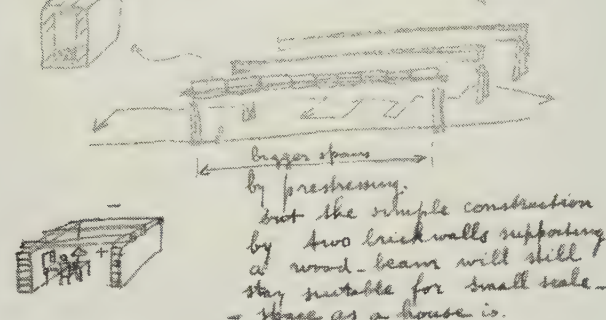 bigger spans
by prestressing.
but the simple construction
by two brickwalls supporting
a wood-beam will still
stay suitable for small scale-
- space as a house is.